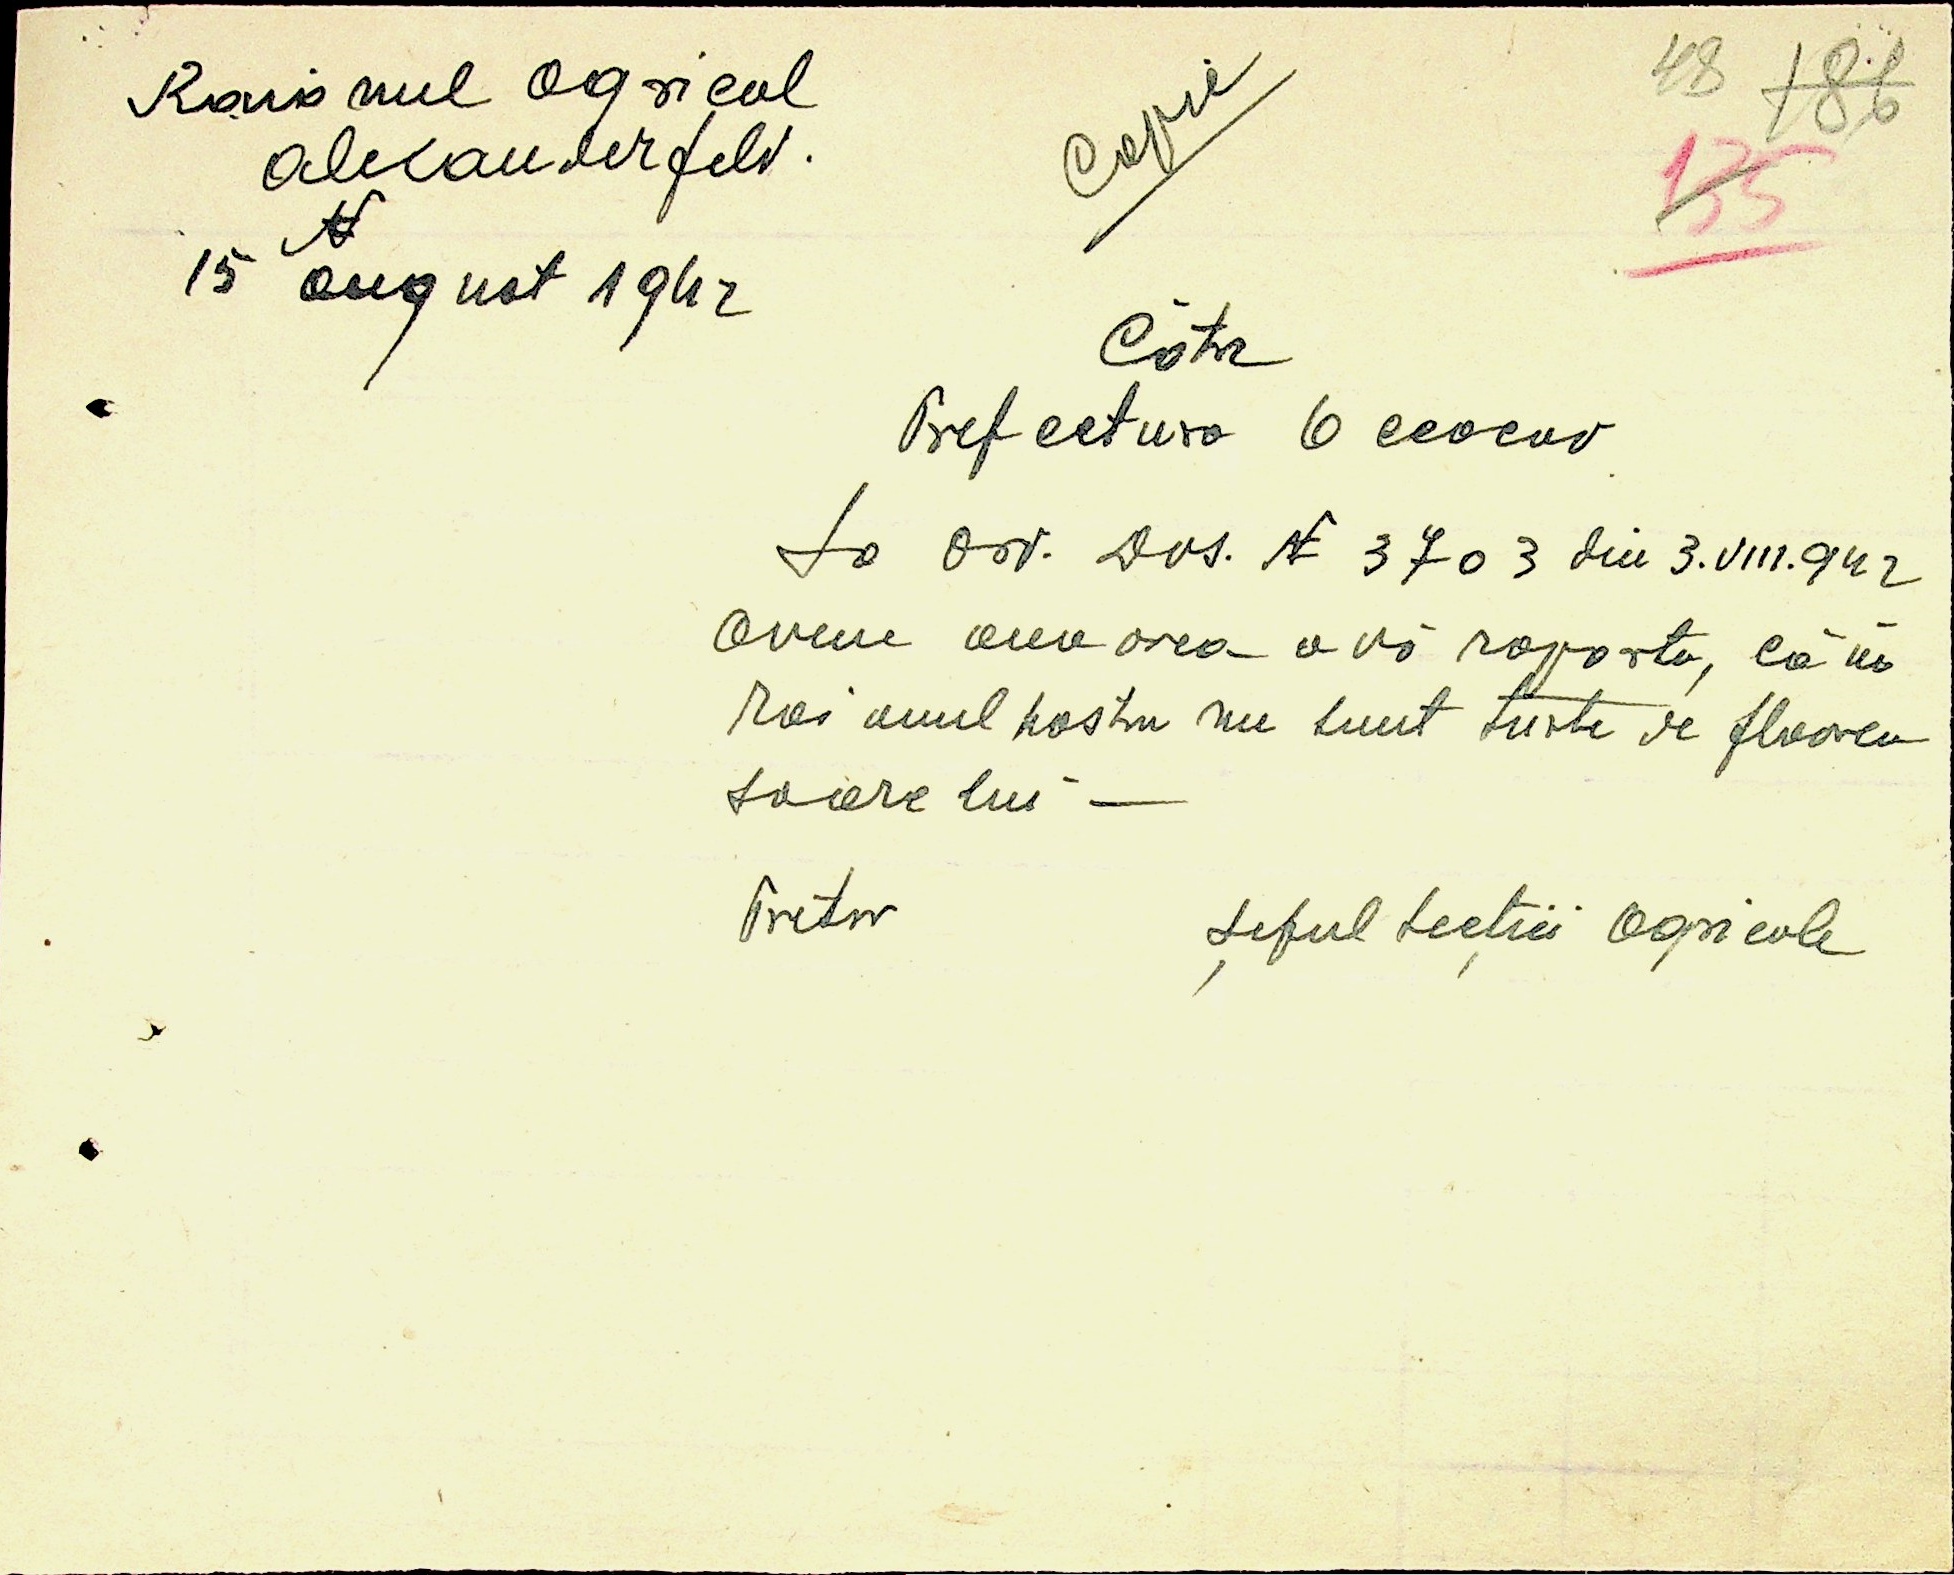 Raionul agricol
Alexanderfeld.
N
15 August 1942
Copie
48 186
135
Cătr
Prefectura Oceacov
La ord. Dvs. N 3703 din 3.VIII.942
avem onoarea a vă raporta, că în
raionul nostru nu sunt turte de floarea
soarelui —
Pretor Șeful secției agricole